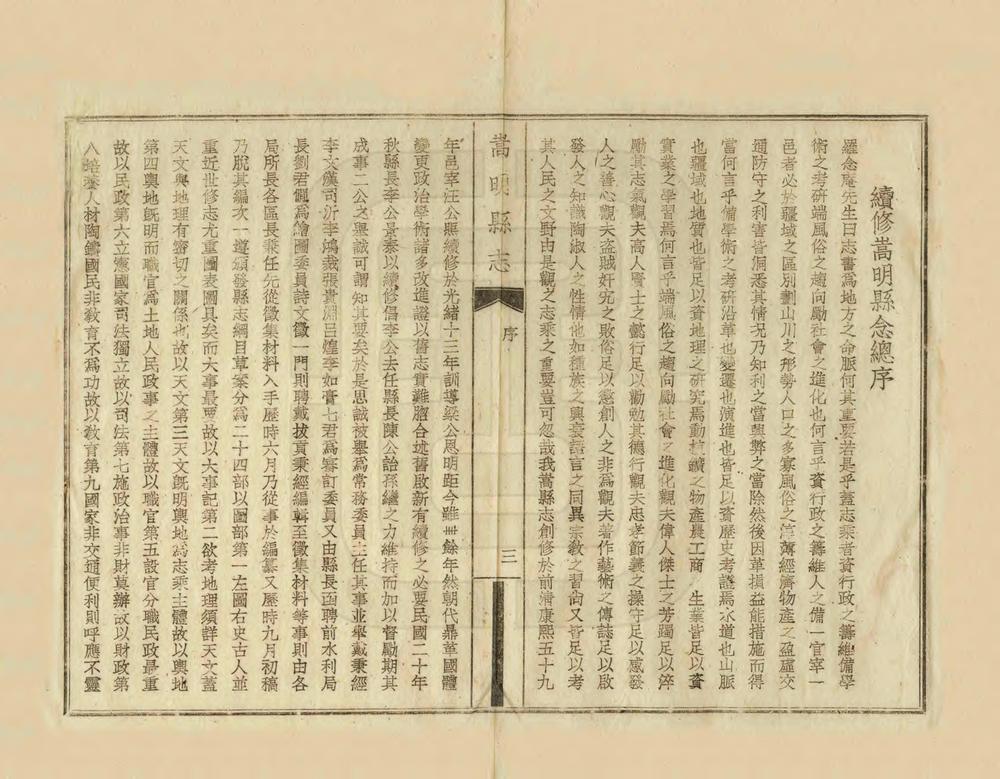 續修嵩明縣志總序
羅念庵先生曰志書爲地方之命脈何其重要若是乎蓋志乘者資行政之籌維備學
術之考研端風俗之趨向勵社會之進化也何言乎資行政之籌維人之備一官宰一
邑者必於疆域之區別劃山川之形勢人口之多寡風俗之淳薄經濟物產之盈虛交
通防守之利害皆洞悉其情况乃知利之當興弊之當除然後因革損益能措施而得
當何言乎備學術之考研沿革也變遷也演進也皆足以資歷史考證焉水道也山脈
也疆域也地質也皆足以資地理之研究焉動植礦之物產農工商 生業皆足以資
實業之學習焉何言乎端風俗之趨向勵社會之進化觀夫偉人傑士之芳躅足以淬
勵其志氣觀夫高人賢士之懿行足以勸勉其德行觀夫忠孝節義之操守足以感發
人之善心觀夫盜賊奸宄之敗俗足以懲創人之非爲觀夫著作藝術之傳誌足以啟
發人之知識陶淑人之性情他如種族之興衰語言之同異宗敎之習尙又皆足以考
其人民之文野由是觀之志乘之重要豈可忽哉我嵩縣志創修於前清康熙五十九
嵩明縣志
序
三
年邑宰汪公熙續修於光緒十三年訓導梁公恩明距今雖卅餘年然朝代鼎革國體
變更政治學術諸多改進證以舊志實難脗合述舊啟新有續修之必要民國二十年
秋縣長李公景泰以續修倡李公去任縣長陳公詒孫繼之力維持而加以督勵期其
成事二公之舉誠可謂知其要矣於是思誠被舉爲常務委員主任其事並舉戴秉經
李文漢司沂李鴻裁張貴淵呂煌李如膏七君爲審訂委員又由縣長函聘前水利局
長劉君 爲繪圖委員詩文徵一門則聘戴拔貢秉經編輯至徵集材料等事則由各
局所長各區長乗任先從徵集材料入手歷時六月乃從事於編纂又歷時九月初稿
乃脫其編次一遵頒發縣志綱目草案分爲二十四部以圖部第一左圖右史古人並
重近世修志尤重圖表圖具矣而大事最要故以大事記第二欲考地理須詳天文蓋
天文與地理有密切之關係也故以天文第三天文旣明輿地爲志乘主體故以輿地
第四輿地旣明而職官爲土地人民政事之主體故以職官第五設官分職民政最重
故以民政第六立憲國家司法獨立故以司法第七施政治事非財莫辦故以財政第
八培養人材陶鑄國民非敎育不爲功故以敎育第九國家非交通便利則呼應不靈